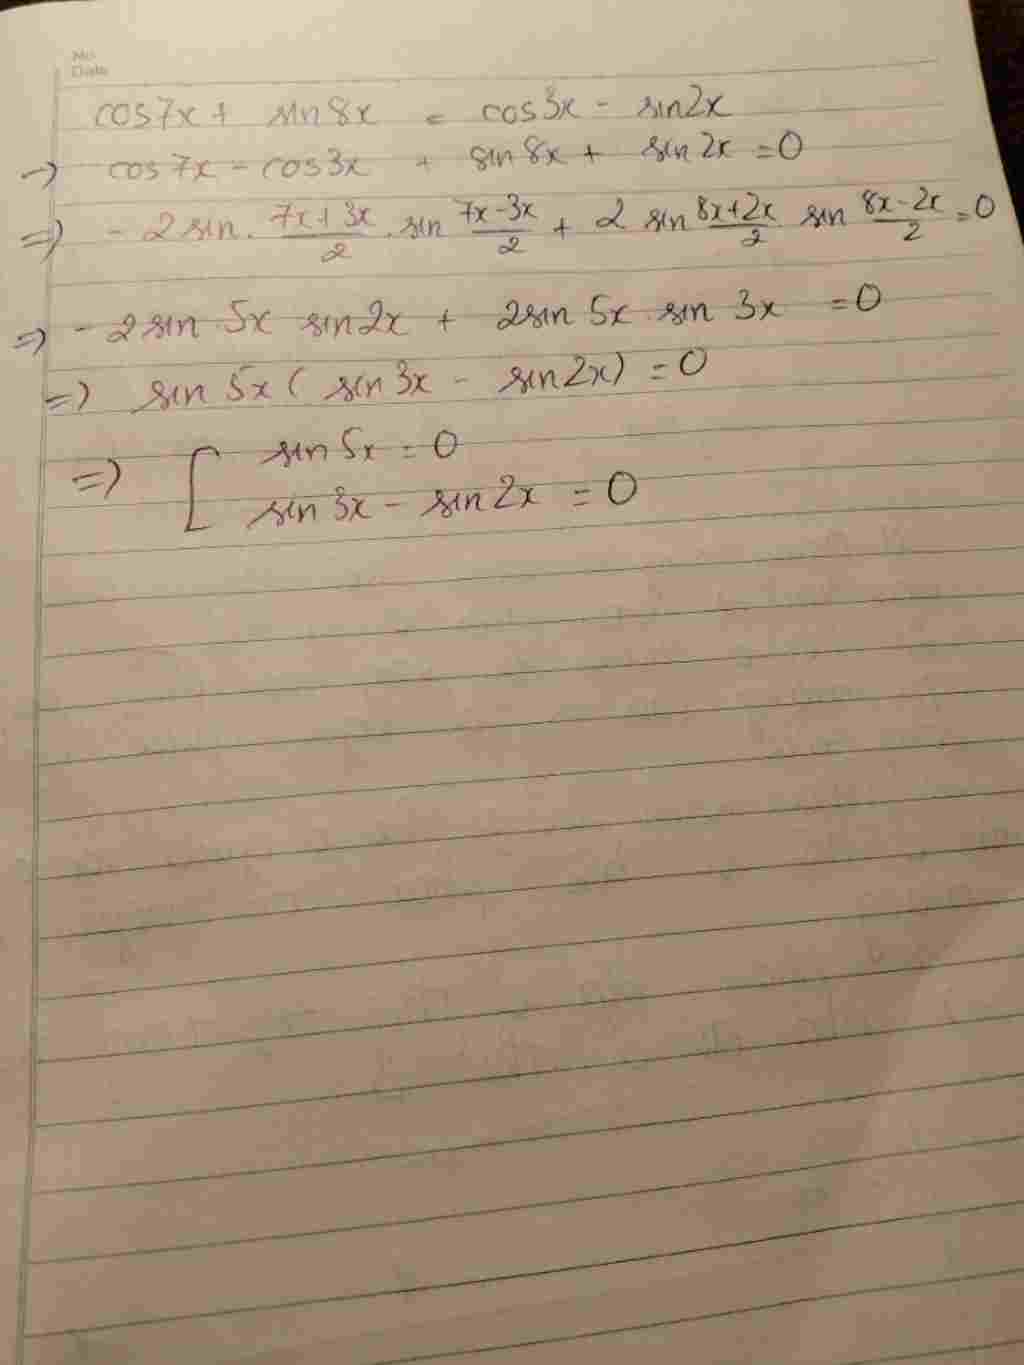 No
Date
cos7x + sin8x = cos3x - sin2x
→ cos7x - cos3x + sin8x + sin2x = 0
=> -2sin. \frac{7x+3x}{2} . sin \frac{7x-3x}{2} + 2 sin \frac{8x+2x}{2} sin \frac{8x-2x}{2} = 0
=> -2sin 5x sin2x + 2sin 5x . sin 3x = 0
=> sin 5x ( sin3x - sin2x) = 0
=> [ sin5x = 0
sin3x - sin2x = 0